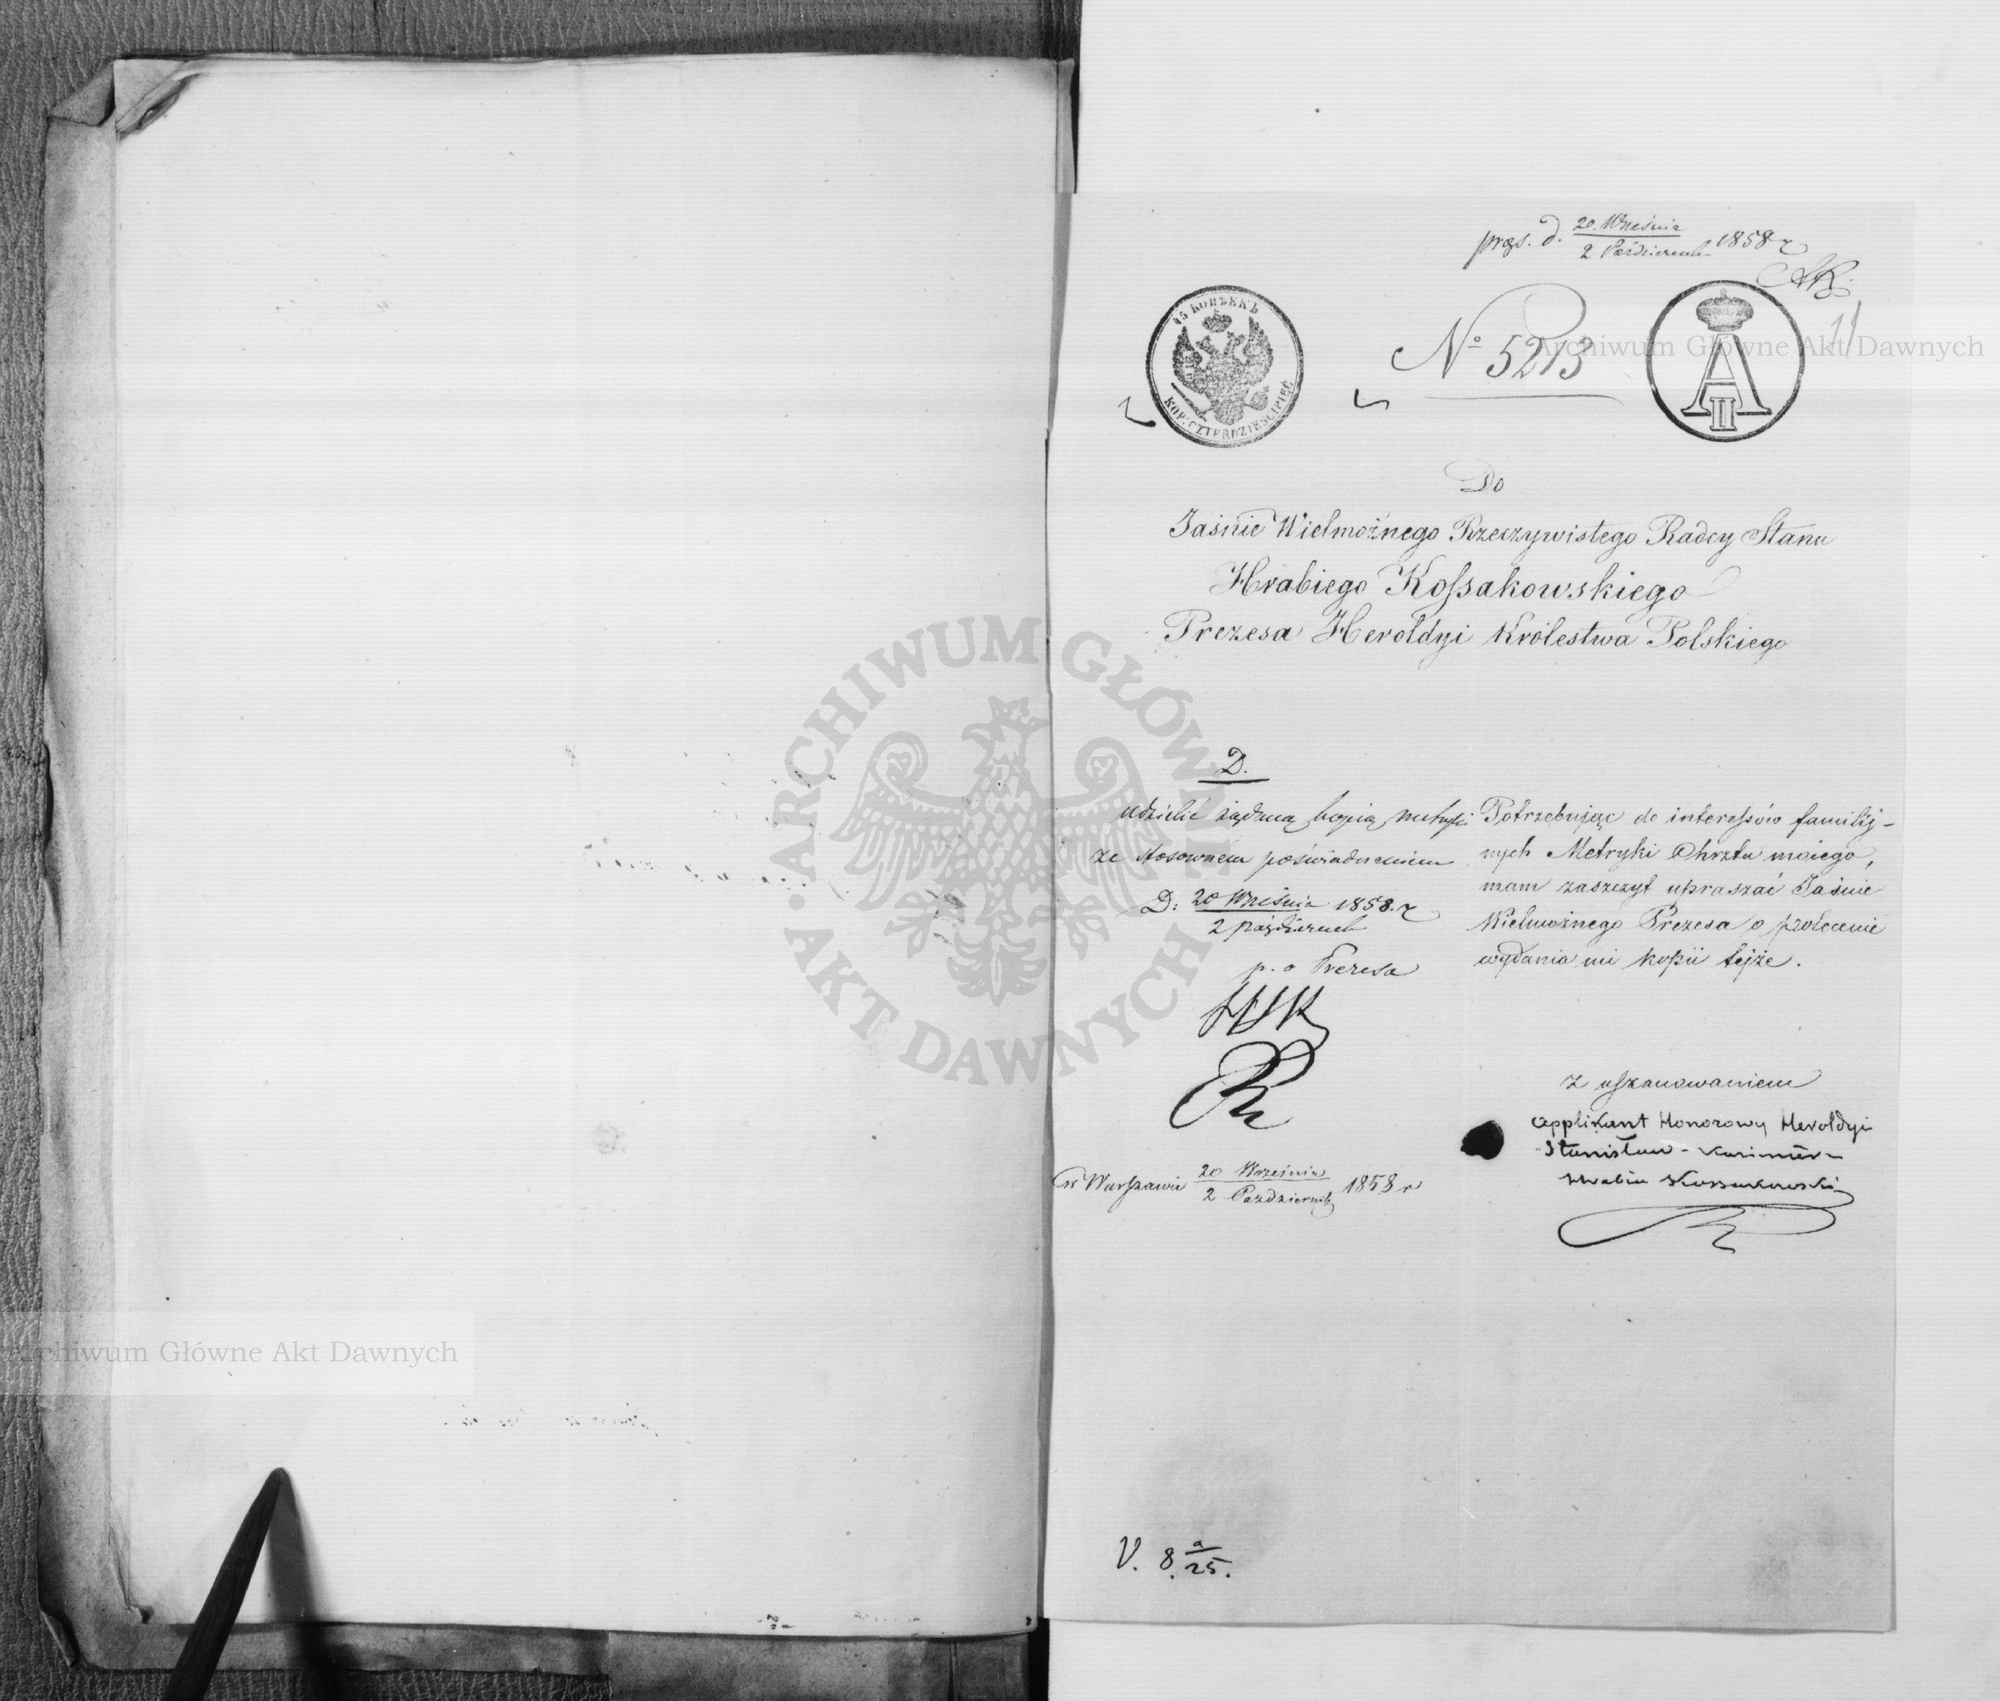 prez. d. 20 Września / 2 Październik 1858 r
AK.
11
45 КОПѢЕКЪ
KOP: CZTERDZIEŚCI PIĘĆ
A II
No 5213
Archiwum Główne Akt Dawnych
Do
Jaśnie Wielmożnego Rzeczywistego Radcy Stanu
Hrabiego Kossakowskiego
Prezesa Heroldyi Królestwa Polskiego
D.
udzielić żądaną kopią metryki
ze stosownem poświadczeniem
D: 20 Września / 2 Październik 1858 r
p. o Prezesa
w Warszawie 20 Września / 2 Październik 1858 r
Potrzebując do interessów familij-
nych Metryki Chrztu moiego,
mam zaszczyt upraszać Jaśnie
Wielmożnego Prezesa o polecenie
wydania mi kopii tejże.
z uszanowaniem
applikant Honorowy Heroldyi
Stanisław - Kazimierz
Hrabia Kossakowski
V. 8. a/25.
ARCHIWUM GŁÓWNE AKT DAWNYCH
Archiwum Główne Akt Dawnych